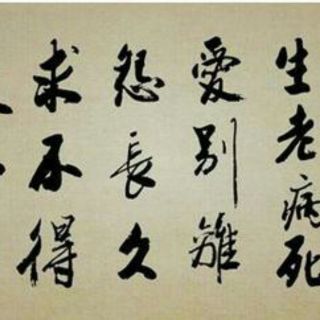 生老病死
愛別離
怨長久
求不得